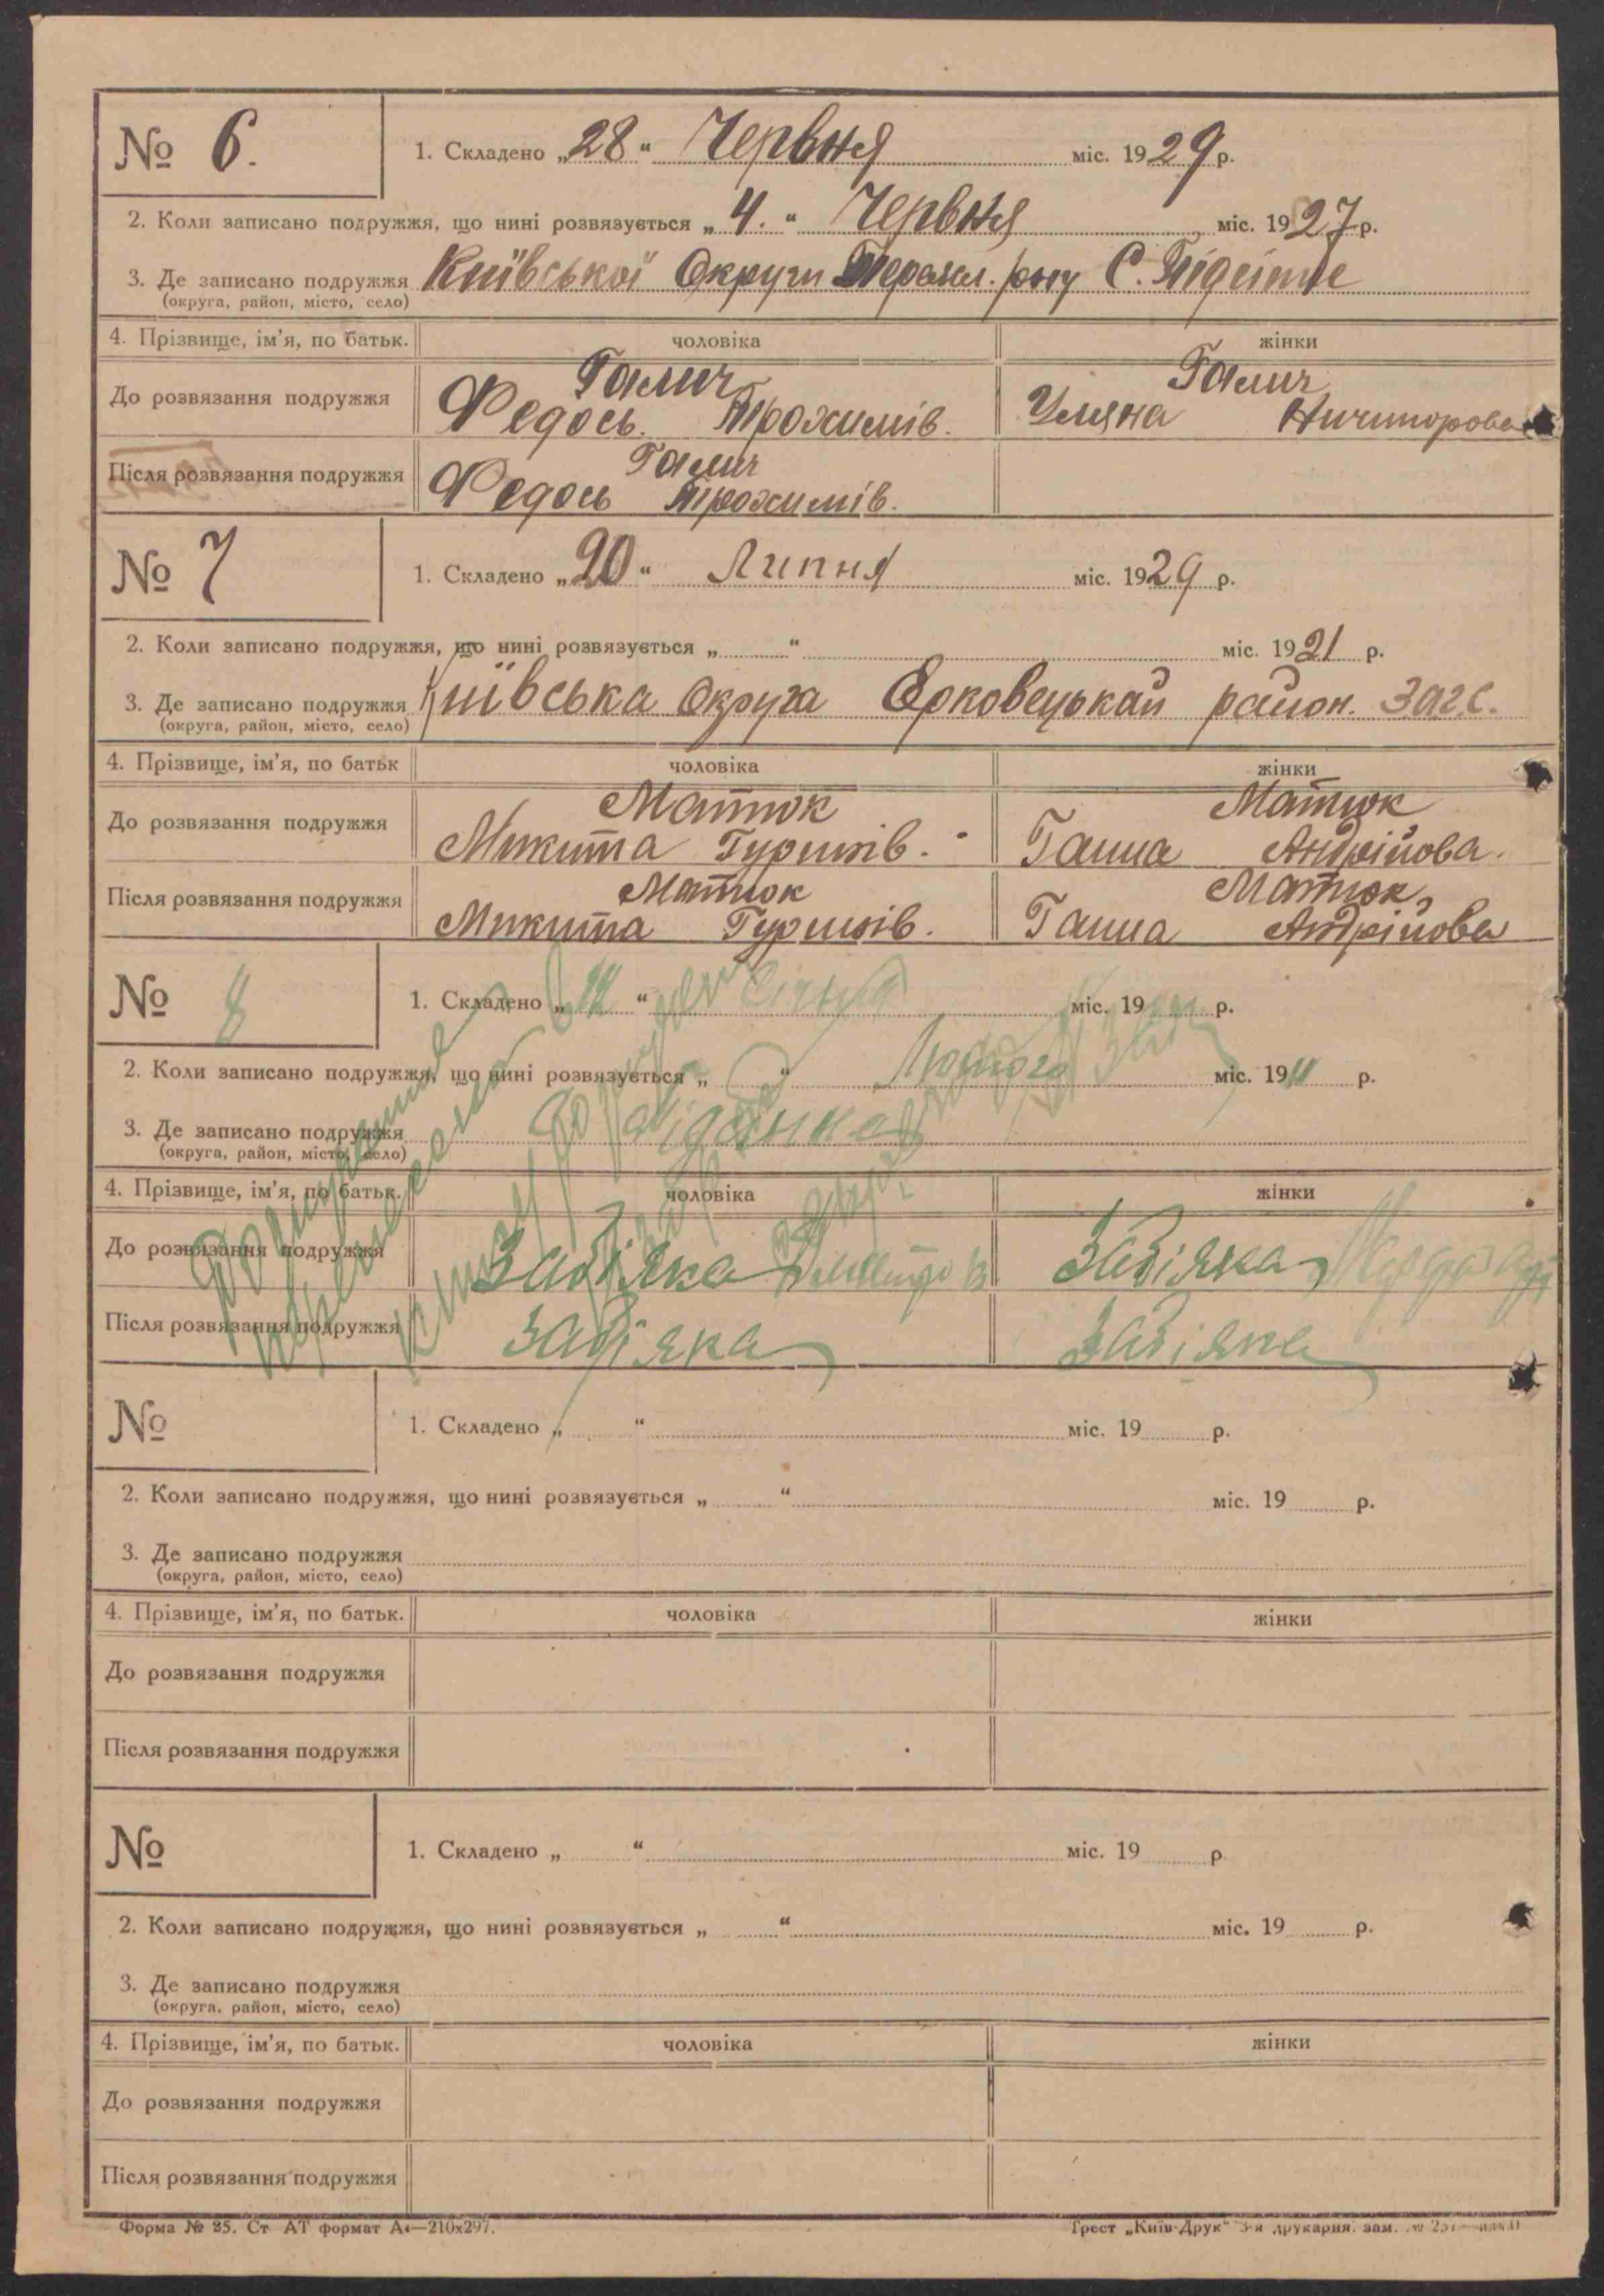 № 6.
1. Складено „28“ Червня міс. 1929 р.
2. Коли записано подружжя, що нині розвязується „4.“ Червня міс. 1927 р.
3. Де записано подружжя Київської Округи р-ну С.
(округа, район, місто, село)
4. Прізвище, ім'я, по батьк. чоловіка жінки
Галич Галич
До розвязання подружжя Федось Трохимів. Уляна Ничипорова
Галич
Після розвязання подружжя Федось Трохимів.
№ 7
1. Складено „20“ Липня міс. 1929 р.
2. Коли записано подружжя, що нині розвязується „ “ міс. 1921 р.
3. Де записано подружжя Київська Округа Єрковецький район. Загс.
(округа, район, місто, село)
4. Прізвище, ім'я, по батьк чоловіка жінки
Матюк Матюк
До розвязання подружжя Микита Гуриїв. Ганна Андрійова.
Матюк Матюк
Після розвязання подружжя Микита Гуриїв. Ганна Андрійова
№ 8
1. Складено „ “ Січня міс. 19 р.
2. Коли записано подружжя, що нині розвязується „ “ Лютого міс. 1911 р.
3. Де записано подружжя
(округа, район, місто, село)
4. Прізвище, ім'я, по батьк. чоловіка жінки
До розвязання подружжя Забіяка Забіяка
Після розвязання подружжя Забіяка Забіяка
№
1. Складено „ “ міс. 19 р.
2. Коли записано подружжя, що нині розвязується „ “ міс. 19 р.
3. Де записано подружжя
(округа, район, місто, село)
4. Прізвище, ім'я, по батьк. чоловіка жінки
До розвязання подружжя
Після розвязання подружжя
№
1. Складено „ “ міс. 19 р
2. Коли записано подружжя, що нині розвязується „ “ міс. 19 р.
3. Де записано подружжя
(округа, район, місто, село)
4. Прізвище, ім'я, по батьк. чоловіка жінки
До розвязання подружжя
Після розвязання подружжя
Форма № 25. Ст АТ формат А4—210х297. Трест „Київ-Друк“ 3-я друкарня. зам. №